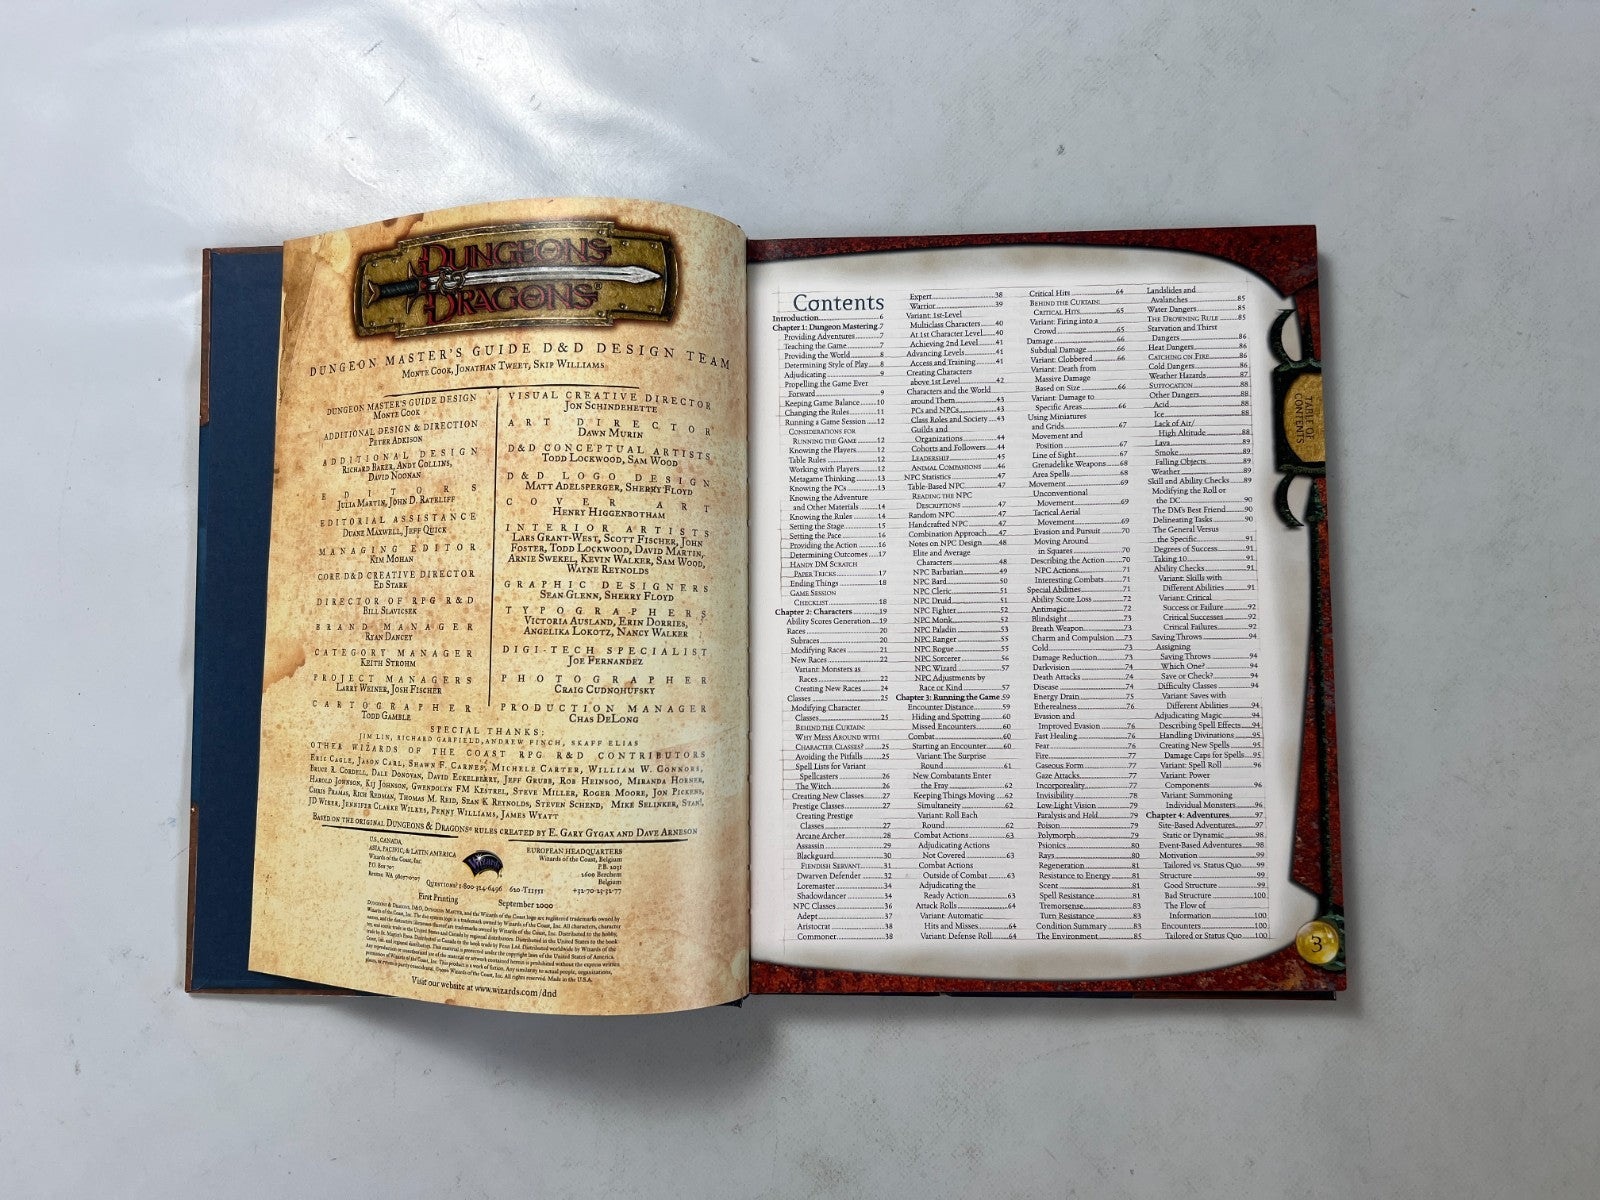 DUNGEONS
DRAGONS®
DUNGEON MASTER'S GUIDE D&D DESIGN TEAM
MONTE COOK, JONATHAN TWEET, SKIP WILLIAMS
DUNGEON MASTER'S GUIDE DESIGN
MONTE COOK
ADDITIONAL DESIGN & DIRECTION
PETER ADKISON
ADDITIONAL DESIGN
RICHARD BAKER, ANDY COLLINS,
DAVID NOONAN
EDITORS
JULIA MARTIN, JOHN D. RATELIFF
EDITORIAL ASSISTANCE
DUANE MAXWELL, JEFF QUICK
MANAGING EDITOR
KIM MOHAN
CORE D&D CREATIVE DIRECTOR
ED STARK
DIRECTOR OF RPG R&D
BILL SLAVICSEK
BRAND MANAGER
RYAN DANCEY
CATEGORY MANAGER
KEITH STROHM
PROJECT MANAGERS
LARRY WEINER, JOSH FISCHER
CARTOGRAPHER
TODD GAMBLE
VISUAL CREATIVE DIRECTOR
JON SCHINDEHETTE
ART DIRECTOR
DAWN MURIN
D&D CONCEPTUAL ARTISTS
TODD LOCKWOOD, SAM WOOD
D&D LOGO DESIGN
MATT ADELSPERGER, SHERRY FLOYD
COVER ART
HENRY HIGGENBOTHAM
INTERIOR ARTISTS
LARS GRANT-WEST, SCOTT FISCHER, JOHN
FOSTER, TODD LOCKWOOD, DAVID MARTIN,
ARNIE SWEKEL, KEVIN WALKER, SAM WOOD,
WAYNE REYNOLDS
GRAPHIC DESIGNERS
SEAN GLENN, SHERRY FLOYD
TYPOGRAPHERS
VICTORIA AUSLAND, ERIN DORRIES,
ANGELIKA LOKOTZ, NANCY WALKER
DIGI-TECH SPECIALIST
JOE FERNANDEZ
PHOTOGRAPHER
CRAIG CUDNOHUFSKY
PRODUCTION MANAGER
CHAS DELONG
SPECIAL THANKS:
JIM LIN, RICHARD GARFIELD, ANDREW FINCH, SKAFF ELIAS
OTHER WIZARDS OF THE COAST RPG R&D CONTRIBUTORS
ERIC CAGLE, JASON CARL, SHAWN F. CARNES, MICHELE CARTER, WILLIAM W. CONNORS,
BRUCE R. CORDELL, DALE DONOVAN, DAVID ECKELBERRY, JEFF GRUBB, ROB HEINSOO, MIRANDA HORNER,
HAROLD JOHNSON, KIJ JOHNSON, GWENDOLYN FM KESTREL, STEVE MILLER, ROGER MOORE, JON PICKENS,
CHRIS PRAMAS, RICH REDMAN, THOMAS M. REID, SEAN K REYNOLDS, STEVEN SCHEND, MIKE SELINKER, STAN!,
JD WIKER, JENNIFER CLARKE WILKES, PENNY WILLIAMS, JAMES WYATT
BASED ON THE ORIGINAL DUNGEONS & DRAGONS® RULES CREATED BY E. GARY GYGAX AND DAVE ARNESON
U.S., CANADA,
ASIA, PACIFIC, & LATIN AMERICA
Wizards of the Coast, Inc.
P.O. Box 707
Renton, WA 98057-0707
Wizards
EUROPEAN HEADQUARTERS
Wizards of the Coast, Belgium
P.B. 2031
2600 Berchem
Belgium
+32-70-23-32-77
QUESTIONS? 1-800-324-6496
620-T11551
First Printing
September 2000
Visit our website at www.wizards.com/dnd
Contents
Introduction 6
Chapter 1: Dungeon Mastering 7
Providing Adventures 7
Teaching the Game 7
Providing the World 8
Determining Style of Play 8
Adjudicating 9
Propelling the Game Ever
Forward 9
Keeping Game Balance 10
Changing the Rules 11
Running a Game Session 12
CONSIDERATIONS FOR
RUNNING THE GAME 12
Knowing the Players 12
Table Rules 12
Working with Players 12
Metagame Thinking 13
Knowing the PCs 13
Knowing the Adventure
and Other Materials 14
Knowing the Rules 14
Setting the Stage 15
Setting the Pace 16
Providing the Action 16
Determining Outcomes 17
HANDY DM SCRATCH
PAPER TRICKS 17
Ending Things 18
GAME SESSION
CHECKLIST 18
Chapter 2: Characters 19
Ability Scores Generation 19
Races 20
Subraces 20
Modifying Races 21
New Races 22
Variant: Monsters as
Races 22
Creating New Races 24
Classes 25
Modifying Character
Classes 25
BEHIND THE CURTAIN:
WHY MESS AROUND WITH
CHARACTER CLASSES? 25
Avoiding the Pitfalls 25
Spell Lists for Variant
Spellcasters 26
The Witch 26
Creating New Classes 27
Prestige Classes 27
Creating Prestige
Classes 27
Arcane Archer 28
Assassin 29
Blackguard 30
FIENDISH SERVANT 31
Dwarven Defender 32
Loremaster 34
Shadowdancer 34
NPC Classes 36
Adept 37
Aristocrat 38
Commoner 38
Expert 38
Warrior 39
Variant: 1st-Level
Multiclass Characters 40
At 1st Character Level 40
Achieving 2nd Level 41
Advancing Levels 41
Access and Training 41
Creating Characters
above 1st Level 42
Characters and the World
around Them 43
PCs and NPCs 43
Class Roles and Society 43
Guilds and
Organizations 44
Cohorts and Followers 44
LEADERSHIP 45
ANIMAL COMPANIONS 46
NPC Statistics 47
Table-Based NPC 47
READING THE NPC
DESCRIPTIONS 47
Random NPC 47
Handcrafted NPC 47
Combination Approach 47
Notes on NPC Design 48
Elite and Average
Characters 48
NPC Barbarian 49
NPC Bard 50
NPC Cleric 51
NPC Druid 51
NPC Fighter 52
NPC Monk 52
NPC Paladin 53
NPC Ranger 55
NPC Rogue 55
NPC Sorcerer 56
NPC Wizard 57
NPC Adjustments by
Race or Kind 57
Chapter 3: Running the Game 59
Encounter Distance 59
Hiding and Spotting 60
Missed Encounters 60
Combat 60
Starting an Encounter 60
Variant: The Surprise
Round 61
New Combatants Enter
the Fray 62
Keeping Things Moving 62
Simultaneity 62
Variant: Roll Each
Round 62
Combat Actions 63
Adjudicating Actions
Not Covered 63
Combat Actions
Outside of Combat 63
Adjudicating the
Ready Action 63
Attack Rolls 64
Variant: Automatic
Hits and Misses 64
Variant: Defense Roll 64
Critical Hits 64
BEHIND THE CURTAIN:
CRITICAL HITS 65
Variant: Firing into a
Crowd 65
Damage 66
Subdual Damage 66
Variant: Clobbered 66
Variant: Death from
Massive Damage
Based on Size 66
Variant: Damage to
Specific Areas 66
Using Miniatures
and Grids 67
Movement and
Position 67
Line of Sight 67
Grenadelike Weapons 68
Area Spells 68
Movement 69
Unconventional
Movement 69
Tactical Aerial
Movement 69
Evasion and Pursuit 70
Moving Around
in Squares 70
Describing the Action 70
NPC Actions 71
Interesting Combats 71
Special Abilities 71
Ability Score Loss 72
Antimagic 72
Blindsight 73
Breath Weapon 73
Charm and Compulsion 73
Cold 73
Damage Reduction 73
Darkvision 74
Death Attacks 74
Disease 74
Energy Drain 75
Etherealness 76
Evasion and
Improved Evasion 76
Fast Healing 76
Fear 76
Fire 77
Gaseous Form 77
Gaze Attacks 77
Incorporeality 77
Invisibility 78
Low-Light Vision 79
Paralysis and Held 79
Poison 79
Polymorph 79
Psionics 80
Rays 80
Regeneration 81
Resistance to Energy 81
Scent 81
Spell Resistance 81
Tremorsense 83
Turn Resistance 83
Condition Summary 83
The Environment 85
Landslides and
Avalanches 85
Water Dangers 85
THE DROWNING RULE 85
Starvation and Thirst
Dangers 86
Heat Dangers 86
CATCHING ON FIRE 86
Cold Dangers 86
Weather Hazards 87
SUFFOCATION 88
Other Dangers 88
Acid 88
Ice 88
Lack of Air/
High Altitude 88
Lava 89
Smoke 89
Falling Objects 89
Weather 89
Skill and Ability Checks 89
Modifying the Roll or
the DC 90
The DM's Best Friend 90
Delineating Tasks 90
The General Versus
the Specific 91
Degrees of Success 91
Taking 10 91
Ability Checks 91
Variant: Skills with
Different Abilities 91
Variant: Critical
Success or Failure 92
Critical Successes 92
Critical Failures 92
Saving Throws 94
Assigning
Saving Throws 94
Which One? 94
Save or Check? 94
Difficulty Classes 94
Variant: Saves with
Different Abilities 94
Adjudicating Magic 94
Describing Spell Effects 94
Handling Divinations 95
Creating New Spells 95
Damage Caps for Spells 95
Variant: Spell Roll 96
Variant: Power
Components 96
Variant: Summoning
Individual Monsters 96
Chapter 4: Adventures 97
Site-Based Adventures 97
Static or Dynamic 98
Event-Based Adventures 98
Motivation 99
Tailored vs. Status Quo 99
Structure 99
Good Structure 99
Bad Structure 100
The Flow of
Information 100
Encounters 100
Tailored or Status Quo 100
TABLE OF
CONTENTS
3